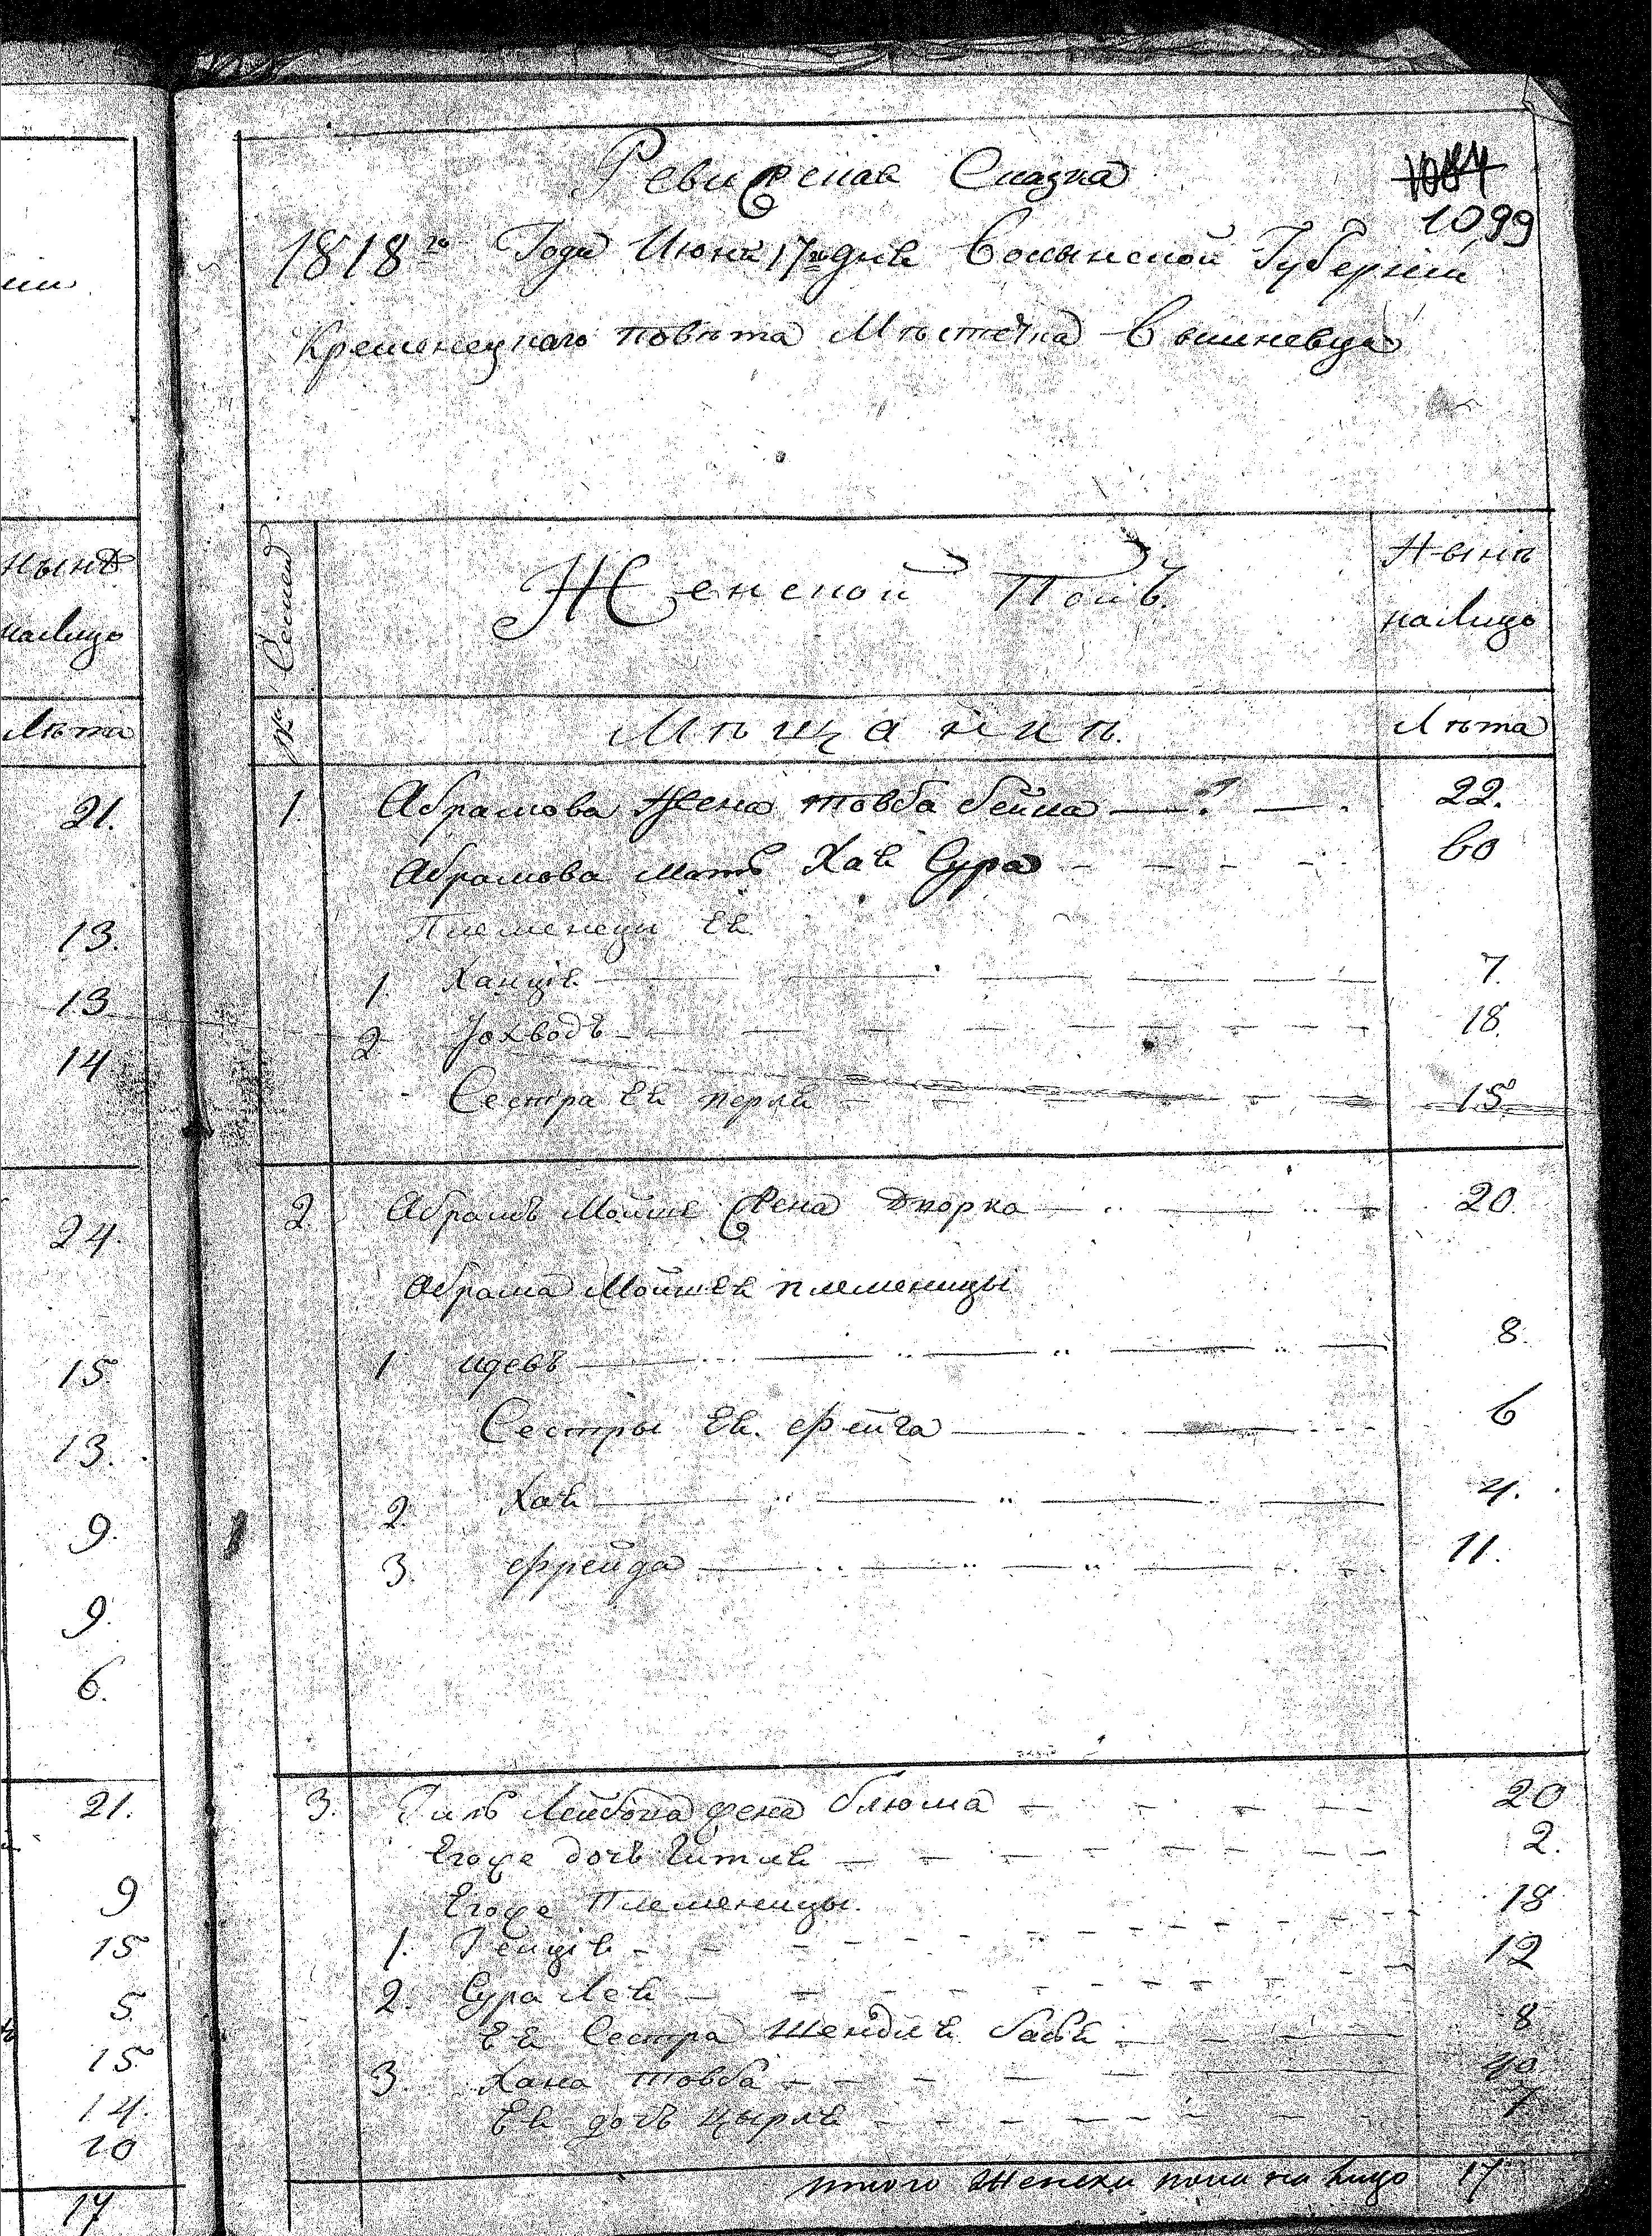 ніи
нынѣ
налицо
Лѣта
21.
13.
13
14
24.
15
13.
9.
9.
6.
21.
9
15
5
15
14.
10
17
Ревизская Сказка
1084
1099
1818го Года Июня 17го дня Волынской Губерніи
Кременецкаго повѣта Мѣстечка Вышневца
№ Семей
Женской Полъ.
Нынѣ
налицо
Мѣщанинѣ.
Лѣта
1. Абрамова Жена товба бейла 22.
Абрамова мать Хая Сура 60
Племенеци Ея
1. Ханця 7.
2 Іохводъ 18.
Сестра Ея перля 15
2. Абрамъ Мойше Жена Дворка 20.
Абрама Мойшея племеницы
1 идевъ 8.
Сестры Ея. Фейга 6
2. Хая 4.
3. Фрейда 11.
3. Гиль Лейбова жена блюма 20
Егоже дочь Гитля 2.
Егоже Племеницы. 18
1. Генця 12
2. Сура Лея
Ея Сестра Шендля бася 8
3. Хана товба 40
Ея дочь цырля 7
итого Женска пола на лицо 17